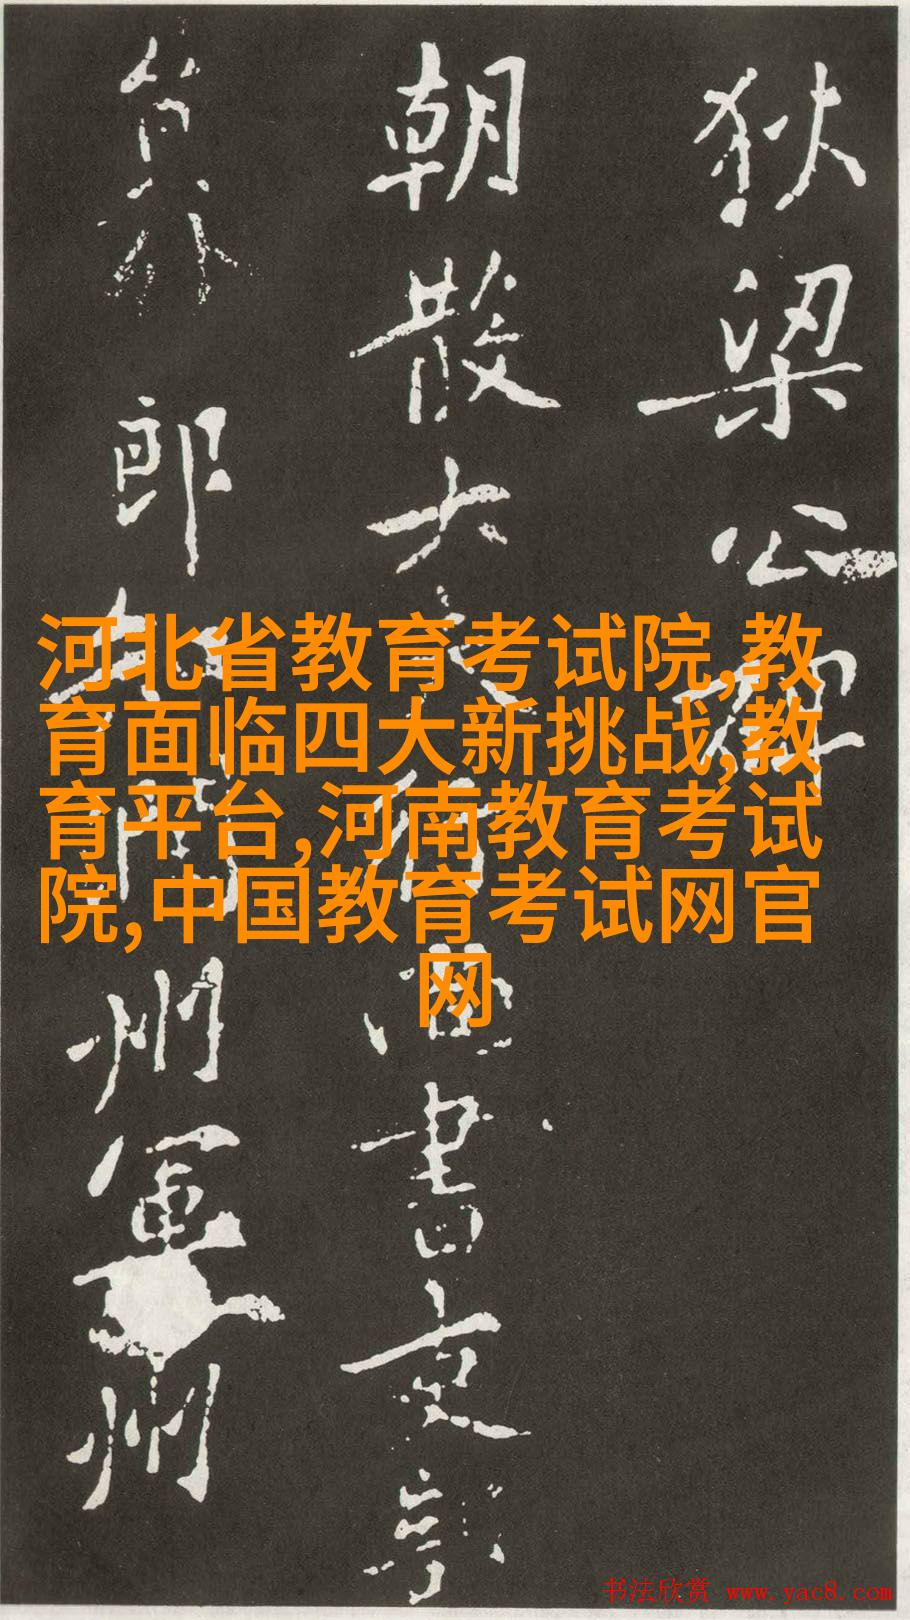 狄梁公碑
朝散大夫行尚書吏
員外郎
州軍州
河北省教育考试院,教
育面临四大新挑战,教
育平台,河南教育考试
院,中国教育考试网官
网
书法欣赏 www.yac8.com